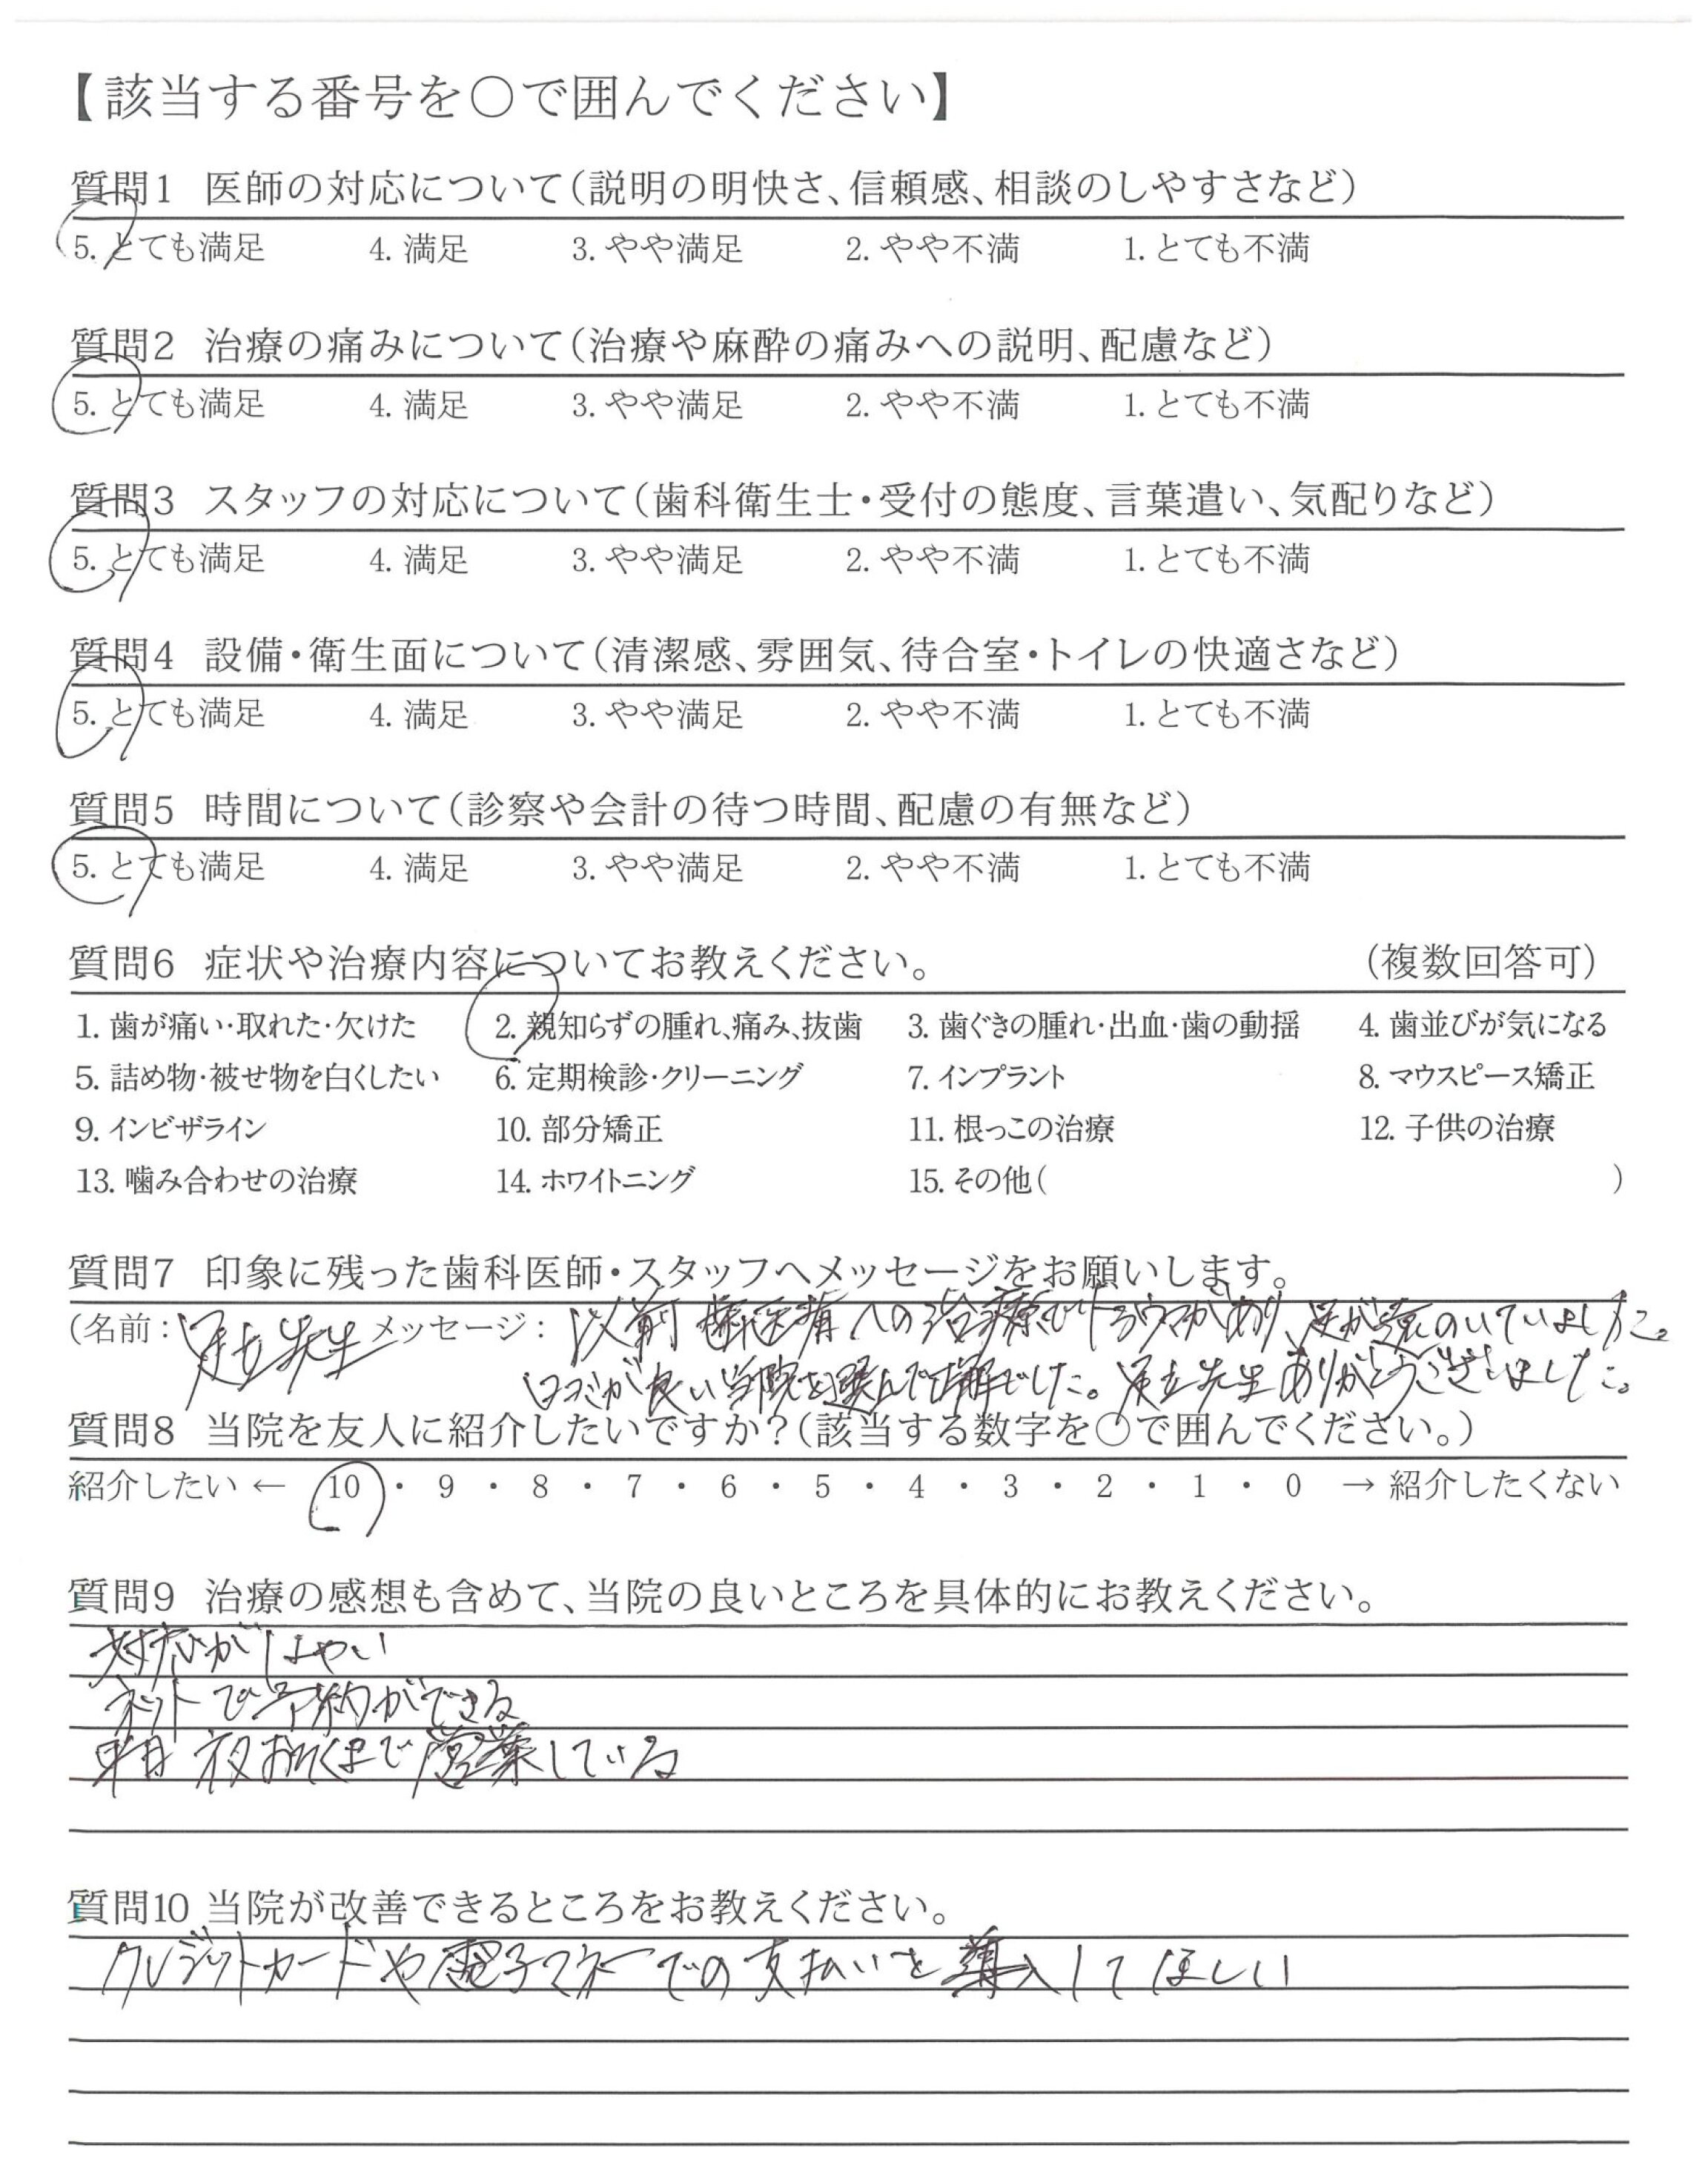 【該当する番号を〇で囲んでください】
質問1 医師の対応について(説明の明快さ、信頼感、相談のしやすさなど)
5. とても満足 4. 満足 3. やや満足 2. やや不満 1. とても不満
質問2 治療の痛みについて(治療や麻酔の痛みへの説明、配慮など)
5. とても満足 4. 満足 3. やや満足 2. やや不満 1. とても不満
質問3 スタッフの対応について(歯科衛生士・受付の態度、言葉遣い、気配りなど)
5. とても満足 4. 満足 3. やや満足 2. やや不満 1. とても不満
質問4 設備・衛生面について(清潔感、雰囲気、待合室・トイレの快適さなど)
5. とても満足 4. 満足 3. やや満足 2. やや不満 1. とても不満
質問5 時間について(診察や会計の待つ時間、配慮の有無など)
5. とても満足 4. 満足 3. やや満足 2. やや不満 1. とても不満
質問6 症状や治療内容についてお教えください。 (複数回答可)
1. 歯が痛い・取れた・欠けた 2. 親知らずの腫れ、痛み、抜歯 3. 歯ぐきの腫れ・出血・歯の動揺 4. 歯並びが気になる
5. 詰め物・被せ物を白くしたい 6. 定期検診・クリーニング 7. インプラント 8. マウスピース矯正
9. インビザライン 10. 部分矯正 11. 根っこの治療 12. 子供の治療
13. 噛み合わせの治療 14. ホワイトニング 15. その他( )
質問7 印象に残った歯科医師・スタッフへメッセージをお願いします。
(名前: 足立先生 メッセージ: 以前 への治療でトラウマがあり、足が遠のいていました。
口コミが良い当院を選んで正解でした。足立先生ありがとうございました。
質問8 当院を友人に紹介したいですか?(該当する数字を〇で囲んでください。)
紹介したい ← 10 ・ 9 ・ 8 ・ 7 ・ 6 ・ 5 ・ 4 ・ 3 ・ 2 ・ 1 ・ 0 → 紹介したくない
質問9 治療の感想も含めて、当院の良いところを具体的にお教えください。
対応がはやい
ネットで予約ができる
平日夜おそくまで営業している
質問10 当院が改善できるところをお教えください。
クレジットカードや電子マネーでの支払いを導入してほしい